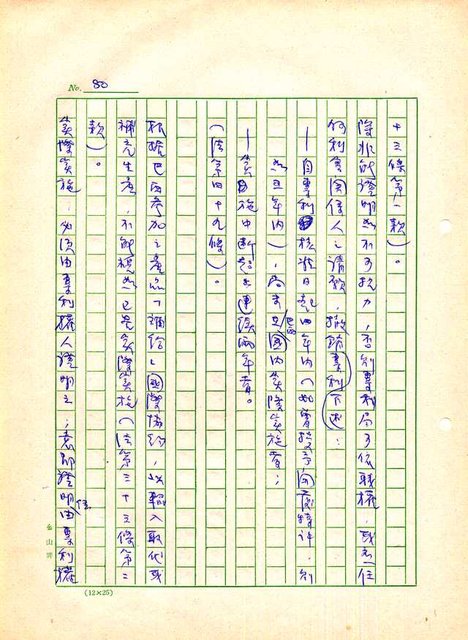 No. 80
十三條第一款)。
除非能證明為不可抗力,否則專利局可依職權,或應任
何利害關係人之請求,撤除專利下述:
—自專利核准日起四年內(如曾授予回復特許,則
為五年內),尚未在巴西國內實際實施者;
—實施中斷超過連續兩年者。
(法第四十九條)。
根據巴西參加之產品「補給」國際協約,以輸入取代或
補充生產,不能視為已是實際實施(法第三十三條第二
款)。
實際實施,必須由專利權人證明之;意即證明係由專利權
(12×25)